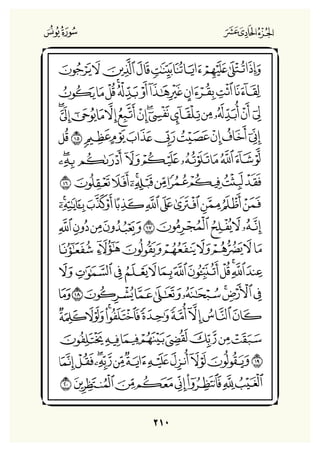 الجزء الحادي عشر سورة يونس
وَإِذَا تُتْلَىٰ عَلَيْهِمْ ءَايَاتُنَا بَيِّنَٰتٍ قَالَ ٱلَّذِينَ لَا يَرْجُونَ
لِقَآءَنَا ٱئْتِ بِقُرْءَانٍ غَيْرِ هَٰذَآ أَوْ بَدِّلْهُ قُلْ مَا يَكُونُ
لِىٓ أَنْ أُبَدِّلَهُۥ مِن تِلْقَآئِ نَفْسِىٓ إِنْ أَتَّبِعُ إِلَّا مَا يُوحَىٰٓ إِلَىَّ
إِنِّىٓ أَخَافُ إِنْ عَصَيْتُ رَبِّى عَذَابَ يَوْمٍ عَظِيمٍ ١٥ قُل
لَّوْ شَآءَ ٱللَّهُ مَا تَلَوْتُهُۥ عَلَيْكُمْ وَلَآ أَدْرَىٰكُم بِهِۦ
فَقَدْ لَبِثْتُ فِيكُمْ عُمُرًا مِّن قَبْلِهِۦٓ أَفَلَا تَعْقِلُونَ ١٦
فَمَنْ أَظْلَمُ مِمَّنِ ٱفْتَرَىٰ عَلَى ٱللَّهِ كَذِبًا أَوْ كَذَّبَ بِـَٔايَٰتِهِۦٓ
إِنَّهُۥ لَا يُفْلِحُ ٱلْمُجْرِمُونَ ١٧ وَيَعْبُدُونَ مِن دُونِ ٱللَّهِ
مَا لَا يَضُرُّهُمْ وَلَا يَنفَعُهُمْ وَيَقُولُونَ هَٰٓؤُلَآءِ شُفَعَٰٓؤُنَا
عِندَ ٱللَّهِ قُلْ أَتُنَبِّـُٔونَ ٱللَّهَ بِمَا لَا يَعْلَمُ فِى ٱلسَّمَٰوَٰتِ وَلَا
فِى ٱلْأَرْضِ سُبْحَٰنَهُۥ وَتَعَٰلَىٰ عَمَّا يُشْرِكُونَ ١٨ وَمَا
كَانَ ٱلنَّاسُ إِلَّآ أُمَّةً وَٰحِدَةً فَٱخْتَلَفُوا۟ وَلَوْلَا كَلِمَةٌ
سَبَقَتْ مِن رَّبِّكَ لَقُضِىَ بَيْنَهُمْ فِيمَا فِيهِ يَخْتَلِفُونَ
١٩ وَيَقُولُونَ لَوْلَآ أُنزِلَ عَلَيْهِ ءَايَةٌ مِّن رَّبِّهِۦ فَقُلْ إِنَّمَا
ٱلْغَيْبُ لِلَّهِ فَٱنتَظِرُوٓا۟ إِنِّى مَعَكُم مِّنَ ٱلْمُنتَظِرِينَ ٢٠
٢١٠